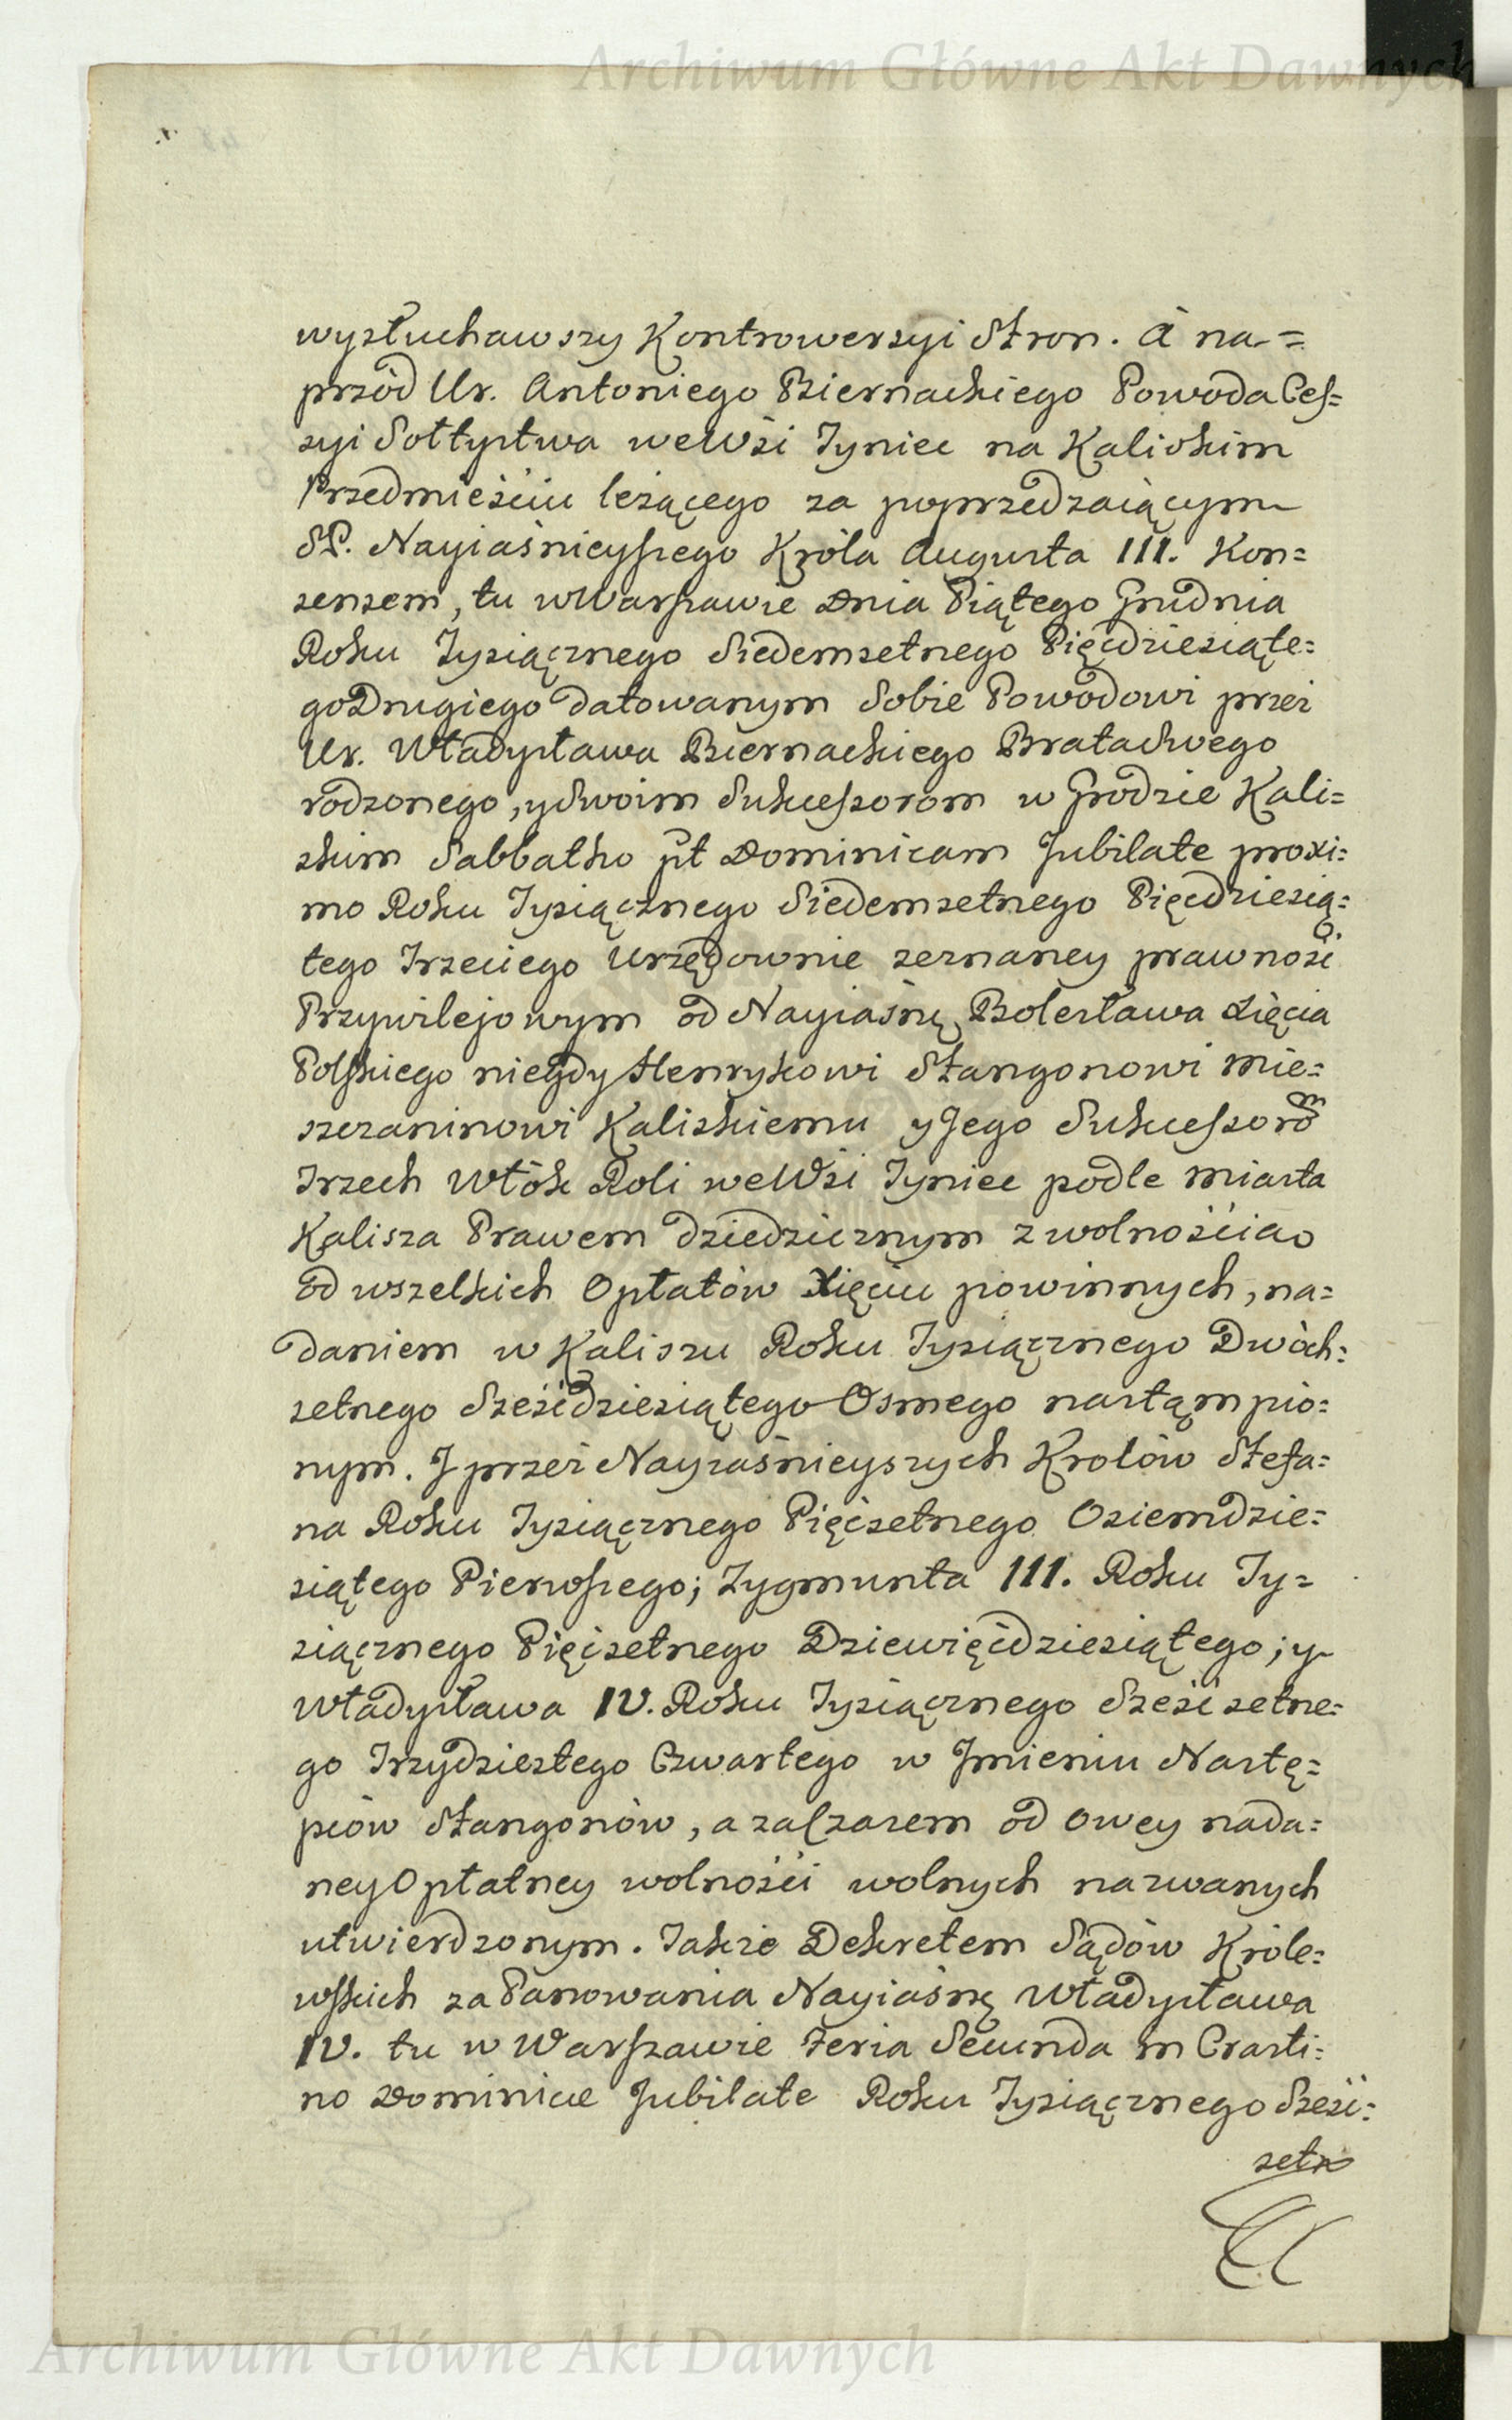 Archiwum Główne Akt Dawnych
wysłuchawszy Kontrowersyi Stron. A na=
przód Ur. Antoniego Biernackiego Powoda Ces=
syi Sołtystwa weWsi Tyniec na Kaliskim
Przedmieściu leżącego za poprzedzaiącym
SP. Nayiaśnieyszego Króla Augusta III. Kon=
sensem, tu wWarszawie Dnia Piątego Grudnia
Roku Tysiącznego Siedemsetnego Pięćdziesiąte=
goDrugiego datowanym Sobie Powodowi przez
Ur. Władysława Biernackiego Brata swego
rodzonego, ySwoim Sukcessorom w Grodzie Kali=
skim Sabbatho pt Dominicam Jubilate proxi=
mo Roku Tysiącznego Siedemsetnego Pięćdziesią=
tego Trzeciego Urzędownie zeznaney prawność
Przywilejowym od Nayiaśnę Bolesława Xięcia
Polskiego niegdy Henrykowi Stangonowi Mie=
szczaninowi Kaliskiemu yJego Sukcessorom
Trzech Włók Roli weWsi Tyniec podle Miasta
Kalisza Prawem dziedzicznym z wolnościąo
od wszelkich Opłatów Xięciu powinnych, na=
daniem w Kaliszu Roku Tysiącznego Dwóch=
setnego Sześćdziesiątego Osmego nastąmpio=
nym. J przez Nayiaśnieyszych Krolów Stefa=
na Roku Tysiącznego Pięćsetnego Osiemdzie=
siątego Pierwszego; Zygmunta III. Roku Ty=
siącznego Pięćsetnego Dziewięćdziesiątego; y
Władysława IV. Roku Tysiącznego Sześćsetne=
go Trzydziestego Czwartego w Jmieniu Nastę=
pców Stangonów, a zaCzasem od owey nada=
neyOpłatney wolności wolnych nazwanych
utwierdzonym. Takze Dekretem Sądów Króle=
wskich za Panowania Nayiaśnę Władysława
IV. tu w Warszawie Feria Secunda in Crasti=
no Dominicæ Jubilate Roku Tysiącznego Sześć=
setn
Archiwum Główne Akt Dawnych